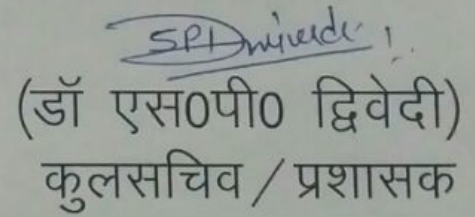 SPDwivedi
(डॉ एस0पी0 द्विवेदी)
कुलसचिव / प्रशासक